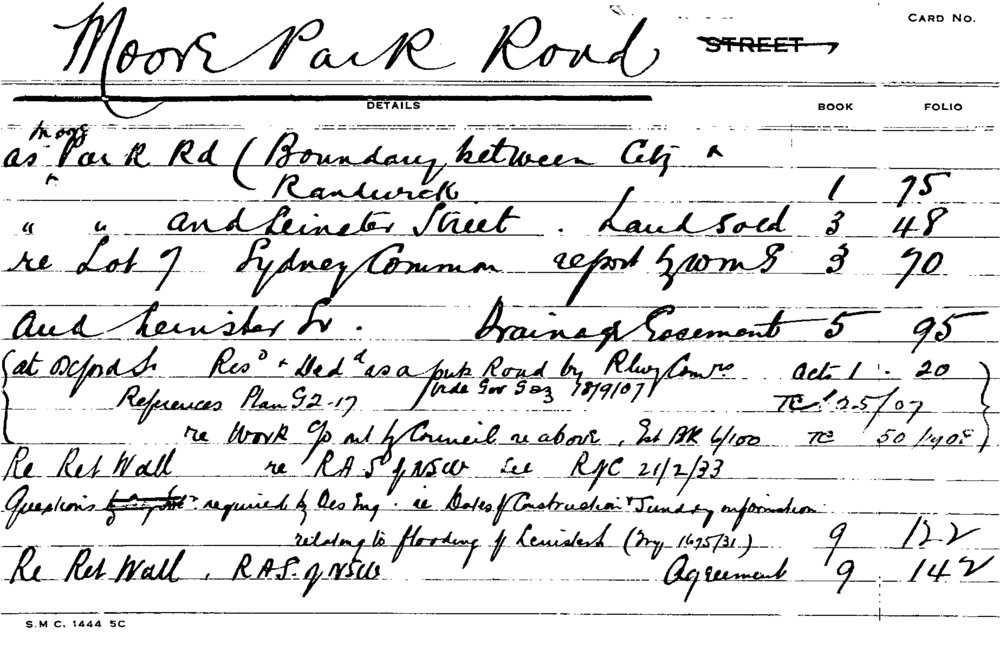 CARD No.
Moore Park Road STREET
DETAILS BOOK FOLIO
Moore
as Park Rd (Boundary between City &
Randwick 1 75
" " and Leinster Street . Land sold 3 48
re Lot 7 Sydney Common report by 3 70
And Leinster St . Drainage Easement 5 95
at Oxford St Resd & Dedd as a pub Road by Rlwy Comrs Acts 1 . 20
vide Gov Gaz 18/9/07
References Plan G2-17 TC 25/07
re Work by Council re above . Est BK 6/100 TC 50/1908
Re Ret Wall re R.A.S of NSW See R/C 21/2/33
Questions required by Des Eng . ie Dates of Construction & Sundry information
relating to flooding of Leinster St (Inq 1695/31) 9 122
Re Ret Wall . R.A.S. of NSW Agreement 9 142
S.M.C. 1444 5C